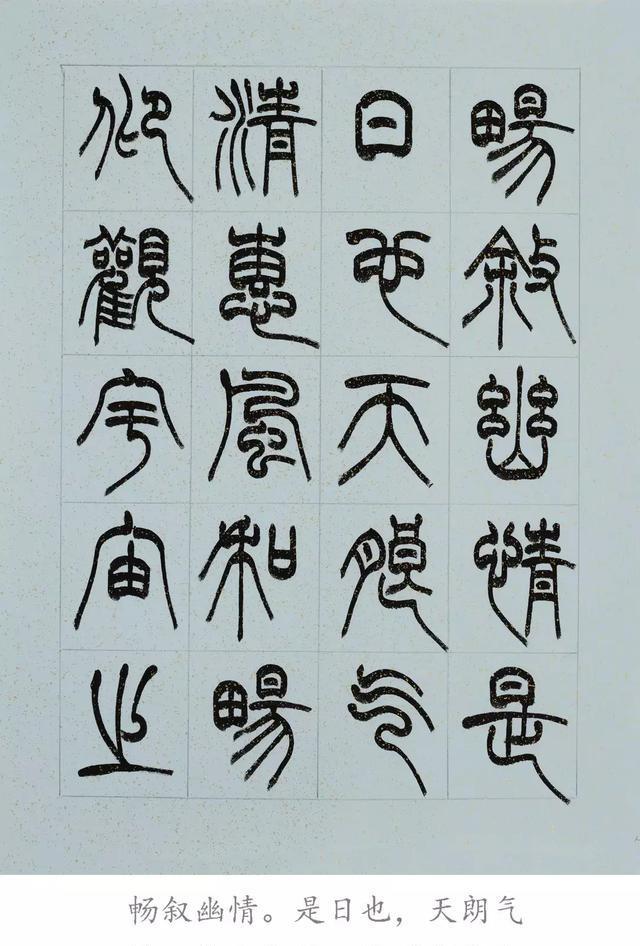 暢敘幽情是
日也天朗气
清惠風和暢
仰觀宇宙之
畅叙幽情。是日也，天朗气